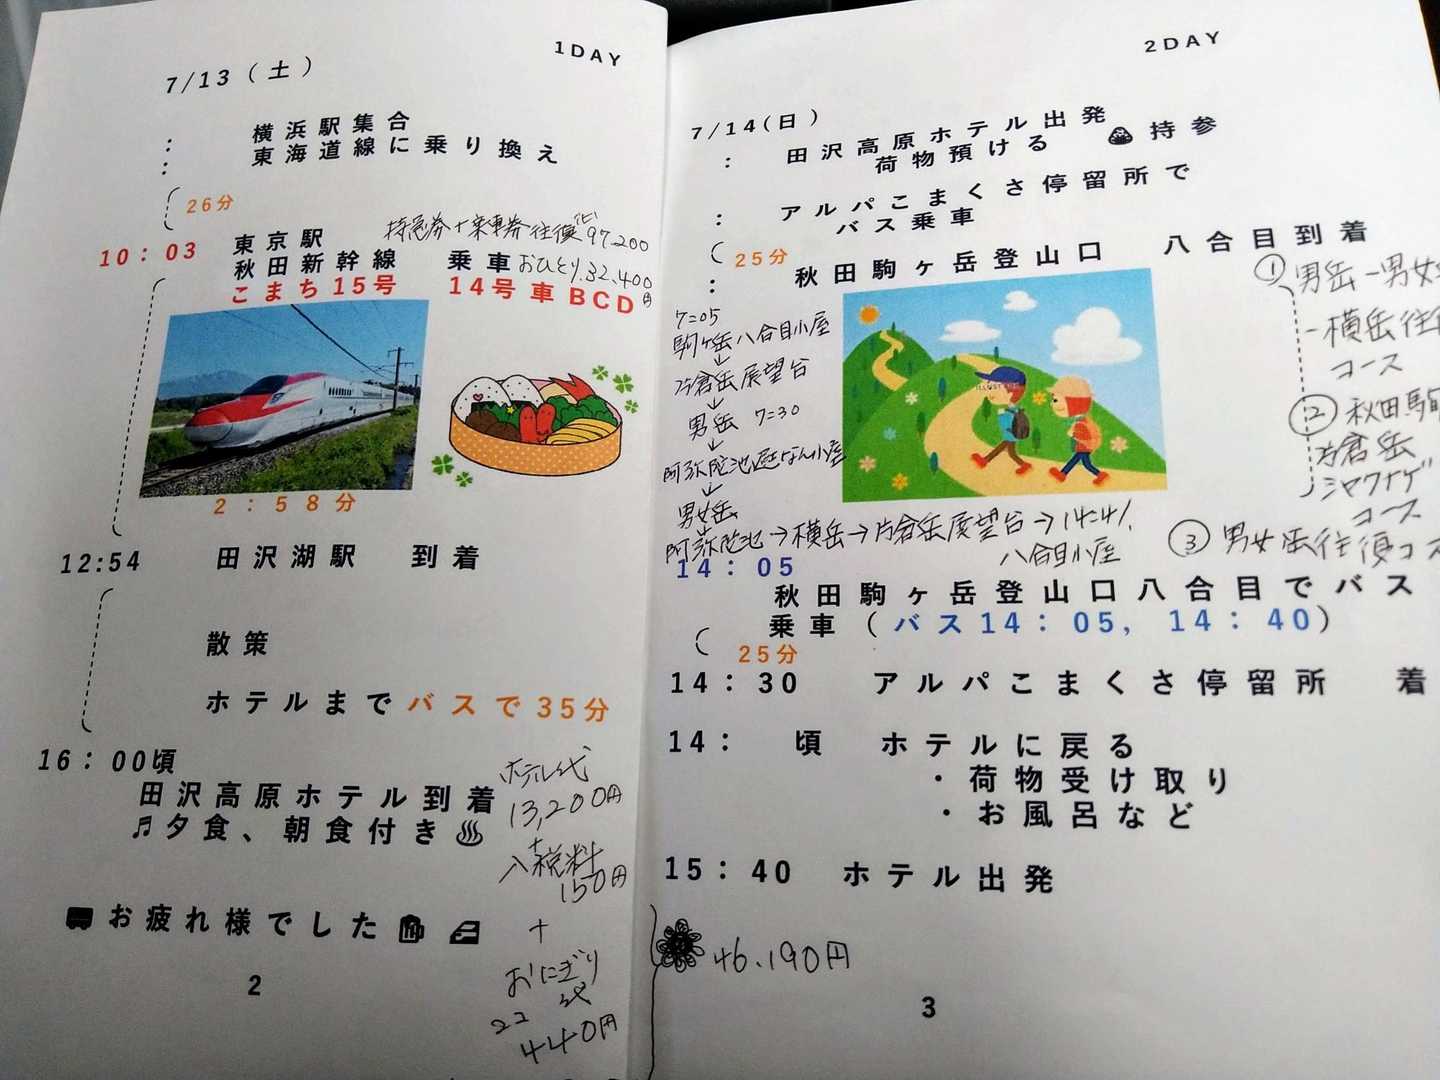 1DAY
7/13(土)
:
横浜駅集合
:
東海道線に乗り換え
26分
特急券+乗車券往復 97,200
10:03 東京駅
秋田新幹線 乗車 おひとり32,400円
こまち15号 14号車BCD
2:58分
12:54 田沢湖駅 到着
散策
ホテルまでバスで35分
16:00頃
田沢高原ホテル到着
♬夕食、朝食付き♨
ホテル代
13,200円
+
入税料
150円
+
おにぎり
代
22
440円
お疲れ様でした
2
2DAY
7/14(日)
: 田沢高原ホテル出発
荷物預ける 持参
: アルパこまくさ停留所で
バス乗車
25分
: 秋田駒ヶ岳登山口 八合目到着
7=05
駒ヶ岳八合目小屋
↓
片倉岳展望台
↓
男岳 7=30
↓
阿弥陀池避なん小屋
↓
男女岳
↓
阿弥陀池→横岳→片倉岳展望台→14=41
八合目小屋
① 男岳-男女
-横岳往
コース
② 秋田駒
片倉岳
シャクナゲ
コース
③ 男女岳往復コ
14:05
秋田駒ヶ岳登山口八合目でバス
乗車(バス14:05, 14:40)
25分
14:30 アルパこまくさ停留所 着
14: 頃 ホテルに戻る
・荷物受け取り
・お風呂など
15:40 ホテル出発
46.190円
3